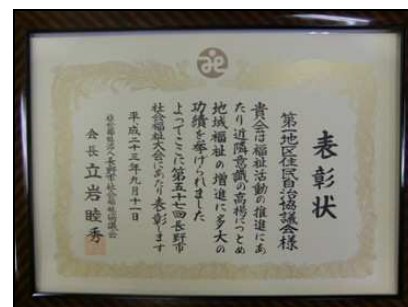 表彰状
第一地区住民自治協議会様
貴会は福祉活動の推進にあ
たり近隣意識の高揚につとめ
地域福祉の増進に多大の
功績を挙げられました
よってここに第五十七回長野市
社会福祉大会にあたり表彰します
平成二十三年九月十一日
社会福祉法人長野市社会福祉協議会
会長立岩睦秀